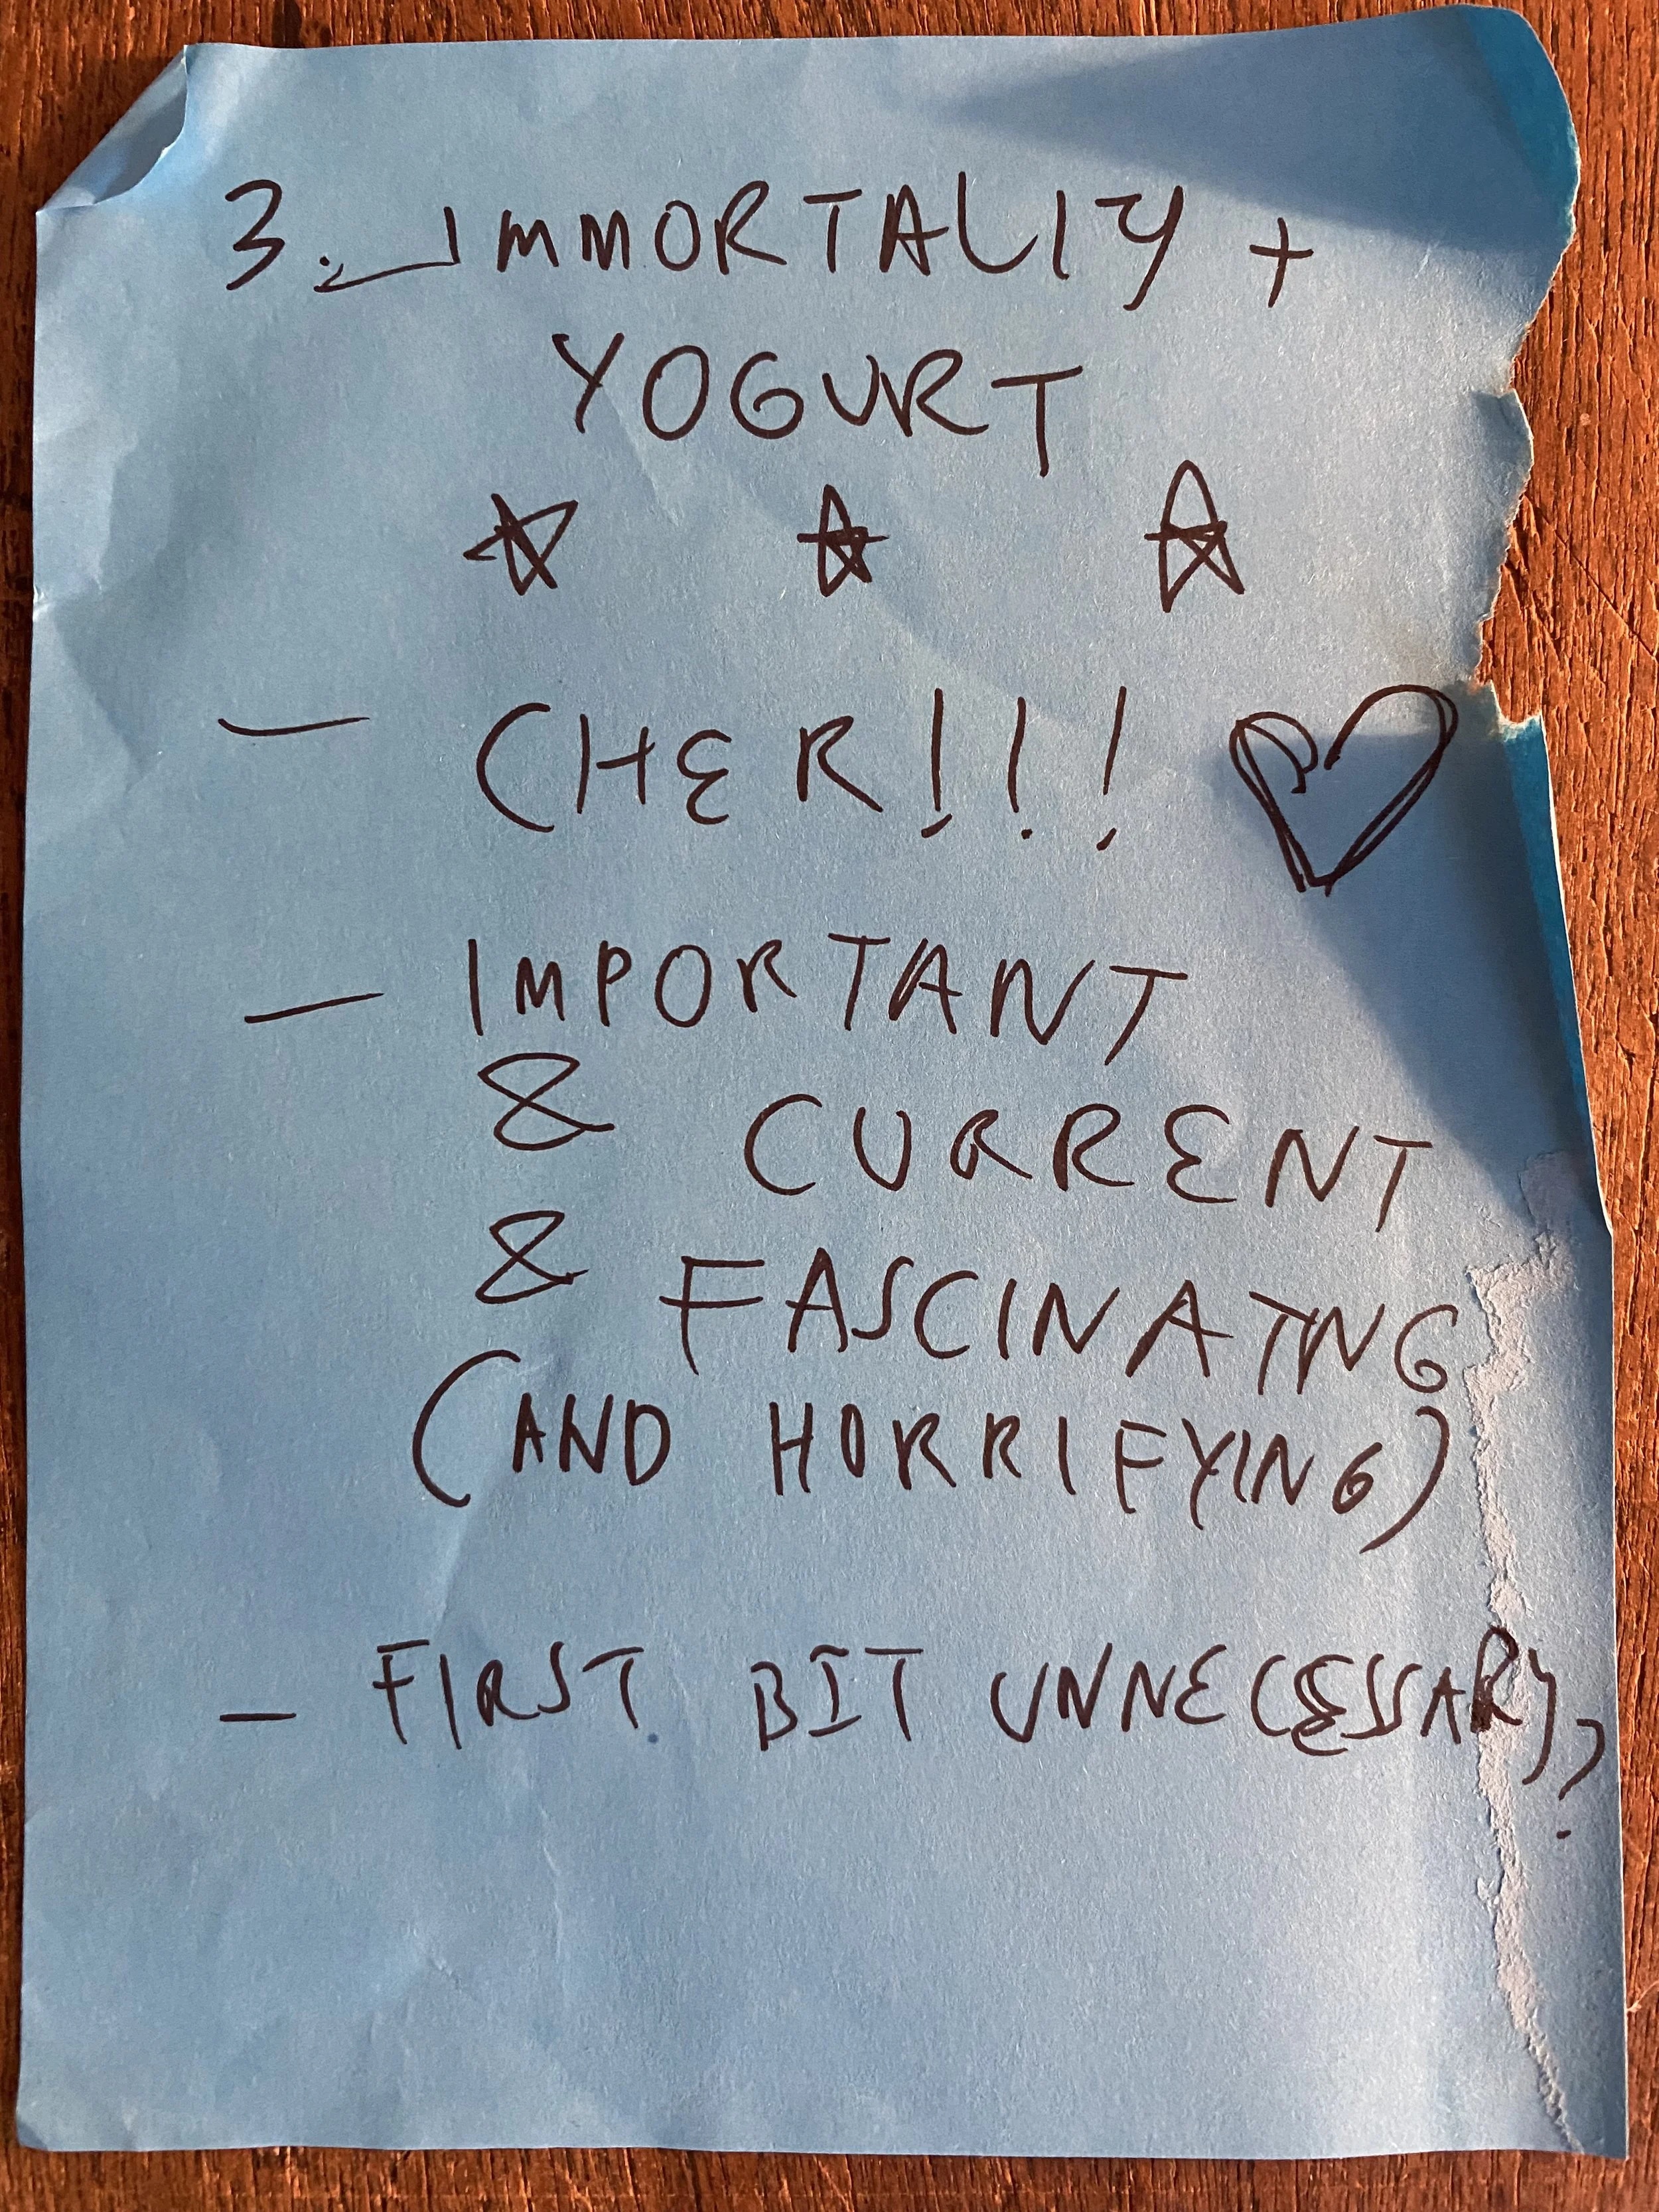 3. IMMORTALIY +
YOGURT
- CHER!!!
- IMPORTANT
& CURRENT
& FASCINATNG
(AND HORRIFYING)
- FIRST BIT UNNECESSARY?